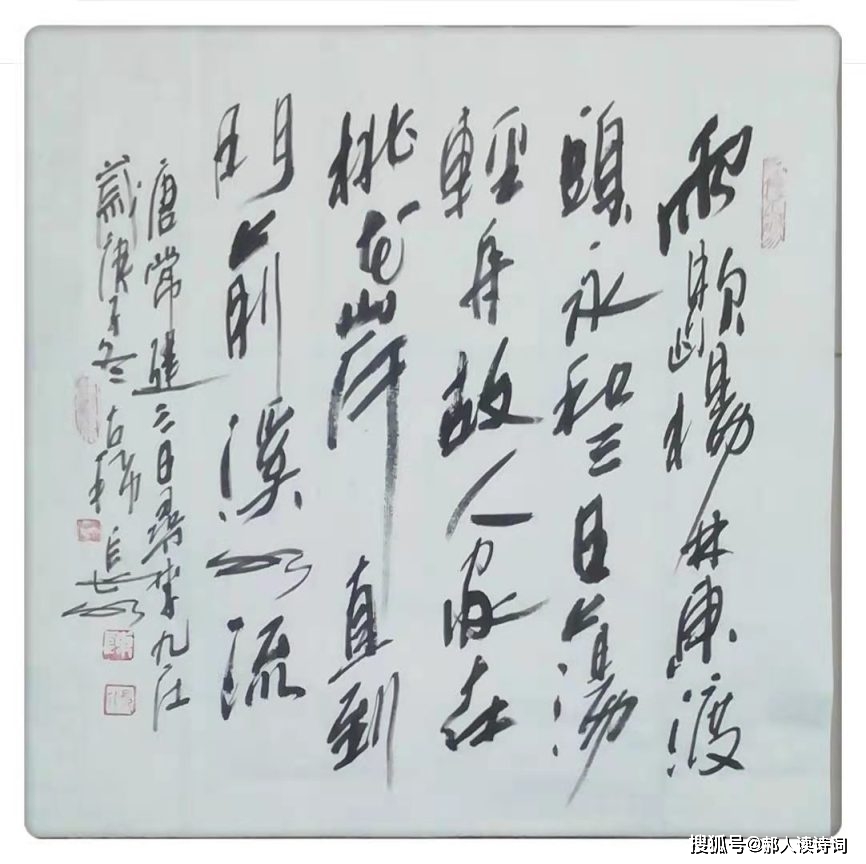 雨歇楊林東渡
頭永和三日蕩
輕舟故人家在
桃花岸直到
門前溪水流
唐常建三日尋李九庄
歲庚子冬古
搜狐号@郝人读诗词